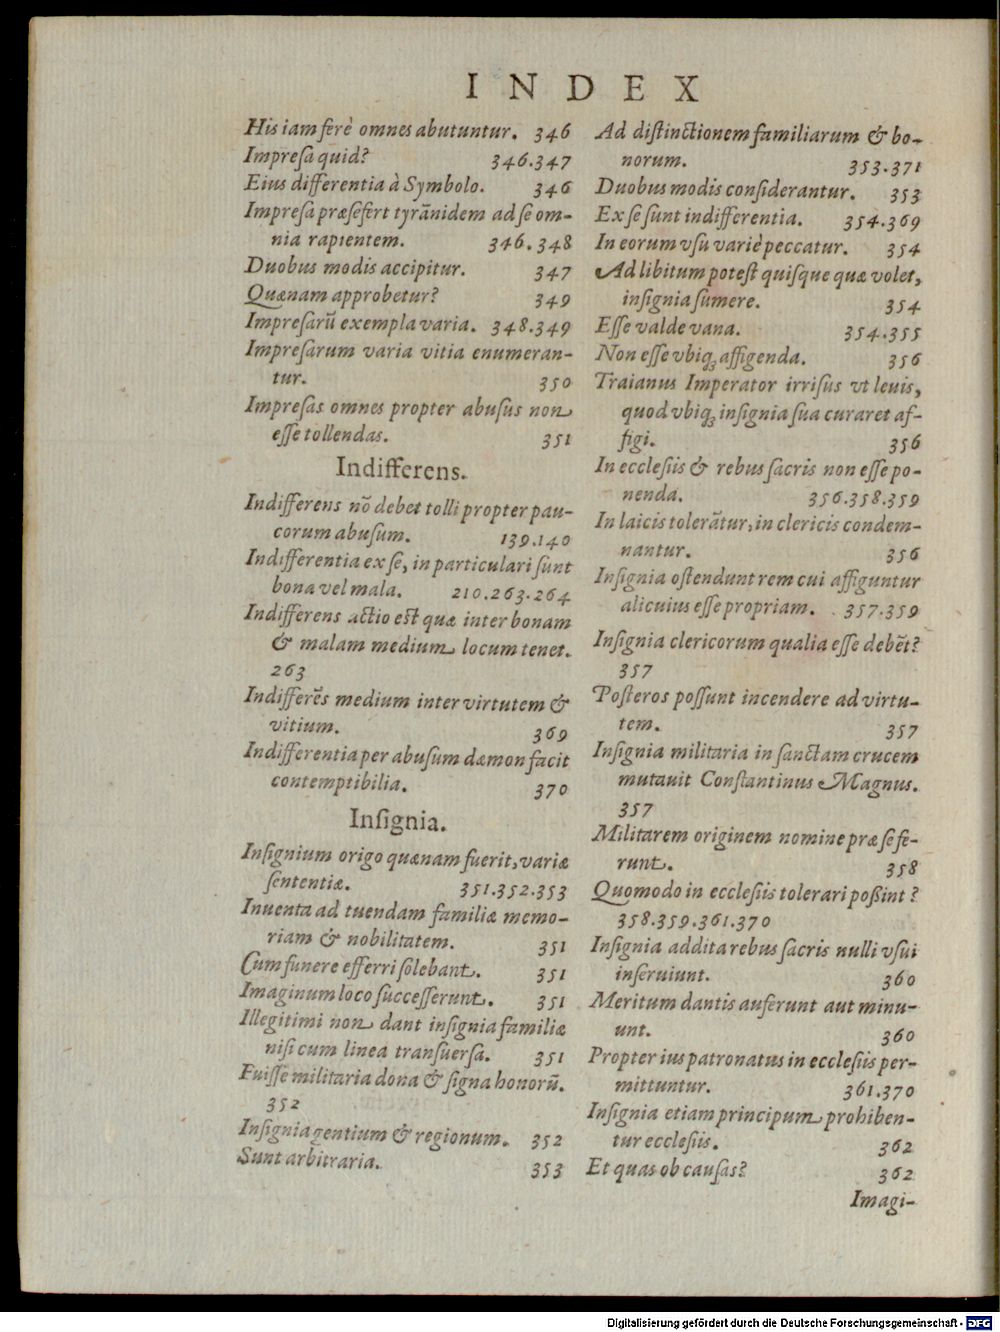 INDEX
His iam ferè omnes abutuntur. 346
Impreſa quid? 346.347
Eius differentia à Symbolo. 346
Impreſa præſefert tyrãnidem ad ſe om-
nia rapientem. 346.348
Duobus modis accipitur. 347
Quænam approbetur? 349
Impreſarũ exempla varia. 348.349
Impreſarum varia vitia enumeran-
tur. 350
Impreſas omnes propter abuſus non
eſſe tollendas. 351
Indifferens.
Indifferens nõ debet tolli propter pau-
corum abuſum. 139.140
Indifferentia ex ſe, in particulari ſunt
bona vel mala. 210.263.264
Indifferens actio eſt quæ inter bonam
& malam medium locum tenet.
263
Indifferẽs medium inter virtutem &
vitium. 369
Indifferentia per abuſum dæmon facit
contemptibilia. 370
Inſignia.
Inſignium origo quænam fuerit, variæ
ſententiæ. 351.352.353
Inuenta ad tuendam familiæ memo-
riam & nobilitatem. 351
Cum funere efferri ſolebant. 351
Imaginum loco ſucceſſerunt. 351
Illegitimi non dant inſignia familiæ
niſi cum linea tranſuerſa. 351
Fuiſſe militaria dona & ſigna honorũ.
352
Inſignia gentium & regionum. 352
Sunt arbitraria. 353
Ad diſtinctionem familiarum & bo-
norum. 353.371
Duobus modis conſiderantur. 353
Ex ſe ſunt indifferentia. 354.369
In eorum vſu variè peccatur. 354
Ad libitum poteſt quiſque quæ volet,
inſignia ſumere. 354
Eſſe valde vana. 354.355
Non eſſe vbiq; affigenda. 356
Traianus Imperator irriſus vt leuis,
quod vbiq; inſignia ſua curaret af-
figi. 356
In eccleſiis & rebus ſacris non eſſe po-
nenda. 356.358.359
In laicis tolerãtur, in clericis condem-
nantur. 356
Inſignia oſtendunt rem cui affiguntur
alicuius eſſe propriam. 357.359
Inſignia clericorum qualia eſſe debẽt?
357
Poſteros poſſunt incendere ad virtu-
tem. 357
Inſignia militaria in ſanctam crucem
mutauit Conſtantinus Magnus.
357
Militarem originem nomine præ ſe fe-
runt. 358
Quomodo in eccleſiis tolerari poßint?
358.359.361.370
Inſignia addita rebus ſacris nulli vſui
inſeruiunt. 360
Meritum dantis auferunt aut minu-
unt. 360
Propter ius patronatus in eccleſiis per-
mittuntur. 361.370
Inſignia etiam principum prohiben-
tur eccleſiis. 362
Et quas ob cauſas? 362
Imagi-
Digitalisierung gefördert durch die Deutsche Forschungsgemeinschaft - DFG